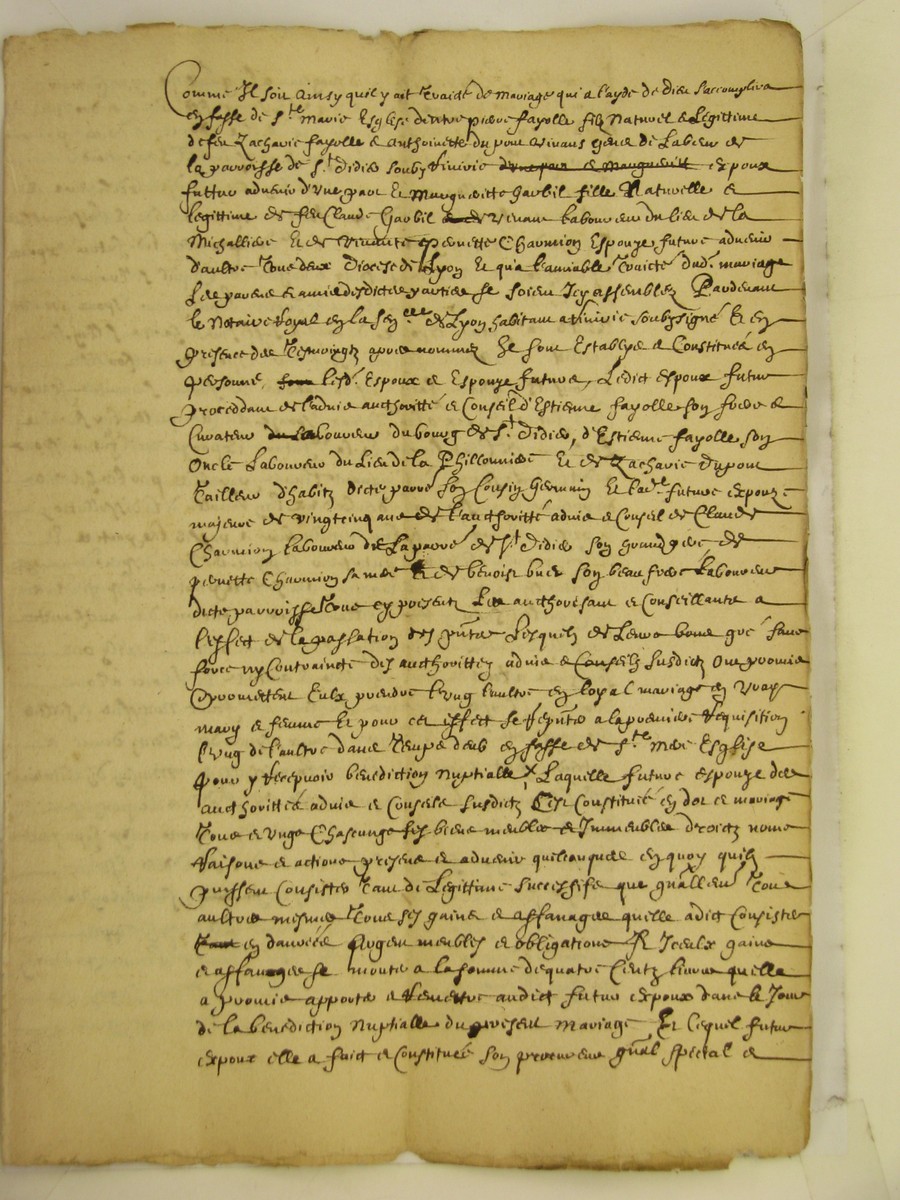 Comme Il soit Ainsy quil y ait Traicté de mariage qui a layde de dieu saccomplira
en fasse de s.te mere Esglise Entre pierre fayolle filz Naturel & Legittime
de feu Zacharie fayolle & Anthoinette du pont vivans de
la parroisse de s.t didier soubz Rivirie espoux
futur advenir d'une part Et Margueritte Garbil fille Naturelle &
legittime de feu Claude Garbil vivant Laboureur du lieu de la
Michalliere Et de pernette Charmion Espouze future advenir
d'aultre Tous deux Diocese de Lyon Et qu'a Lamiable Traicté dud. mariage
Les parens & amis desdictes parties se soient Icy assemblez Pardevant
le Notaire Royal en la sen.cee de Lyon habitant a Rivirie soubzsigné Et en
presence des Tesmoingtz apres nommez Se sont Establys & Constitués en
personne, lesd. Espoux & Espouze futurs, Ledict espoux futur
proceddant de l'advis aucthoritté & Conseil d'Estienne fayolle son frere &
Curateur Laboureur du bourg de s.t Didier, d'Estienne fayolle son
Oncle Laboureur du Lieu de la Phillonniere Et de Zacharie dupont
Tailleur d'habitz dicte parre son Cousin Germain Et lad.e future espouze
majeure de vingtcinq ans de l'aucthoritté advis & Conseil de Claude
Charmion Laboureur de La parre de s.t Didier son grand pere de
pernette Charmion sa mere & de benoist son beau frere Laboureur
dicte parroisse Tous cy presentz Les aucthorisant & Conseillantz a
l'effect de la passation des pntes Lesquelz de Leurs bons gré sans
force ny Contraincte des aucthorittez advis & Conseilz susdictz Ont promis
& promettent Eulx prendre L'ung Laultre en loyal mariage en vrays
mary & femme Et pour cet effect se a la premiere Requisition
L'ung de l'aultre dans Temps deub en fasse de s.te mere Esglise
pour y Recepvoir benediction Nuptialle Laquelle future espouze des
aucthorittés advis & Conseilz susdictz s'est Constitués en dot & mariage
Tous & Ungs Chascungs ses biens meubles & Immeubles droictz noms
Raisons & actions presens & advenir quelconques en quoy quilz
puyssent Consister Tant de Legittime successifs que gnallem.t Tous
aultres mesmes Tous ses gains & affanages quelle a dict Consister
en danrées Argent meubles & obligations Et Iceulx gains
& affanages se monter a la somme de quatre Centz livres quelle
a promis apporter & Remettre audict futur espoux dans le Jour
de la benediction Nuptialle du present mariage Et lequel futur
espoux elle a faict & Constitués son procureur gnal special &